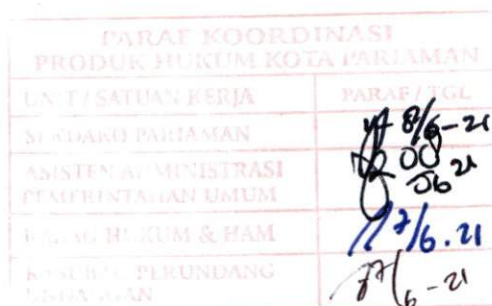 PARAF KOORDINASI
PRODUK HUKUM KOTA PARIAMAN
UNIT / SATUAN KERJA PARAF / TGL
SEKDAKO PARIAMAN 8/6-21
ASISTEN ADMINISTRASI
PEMERINTAHAN UMUM 06 21
KABAG HUKUM & HAM 7/6.21
KASUBAG PERUNDANG
UNDANGAN 7/6-21